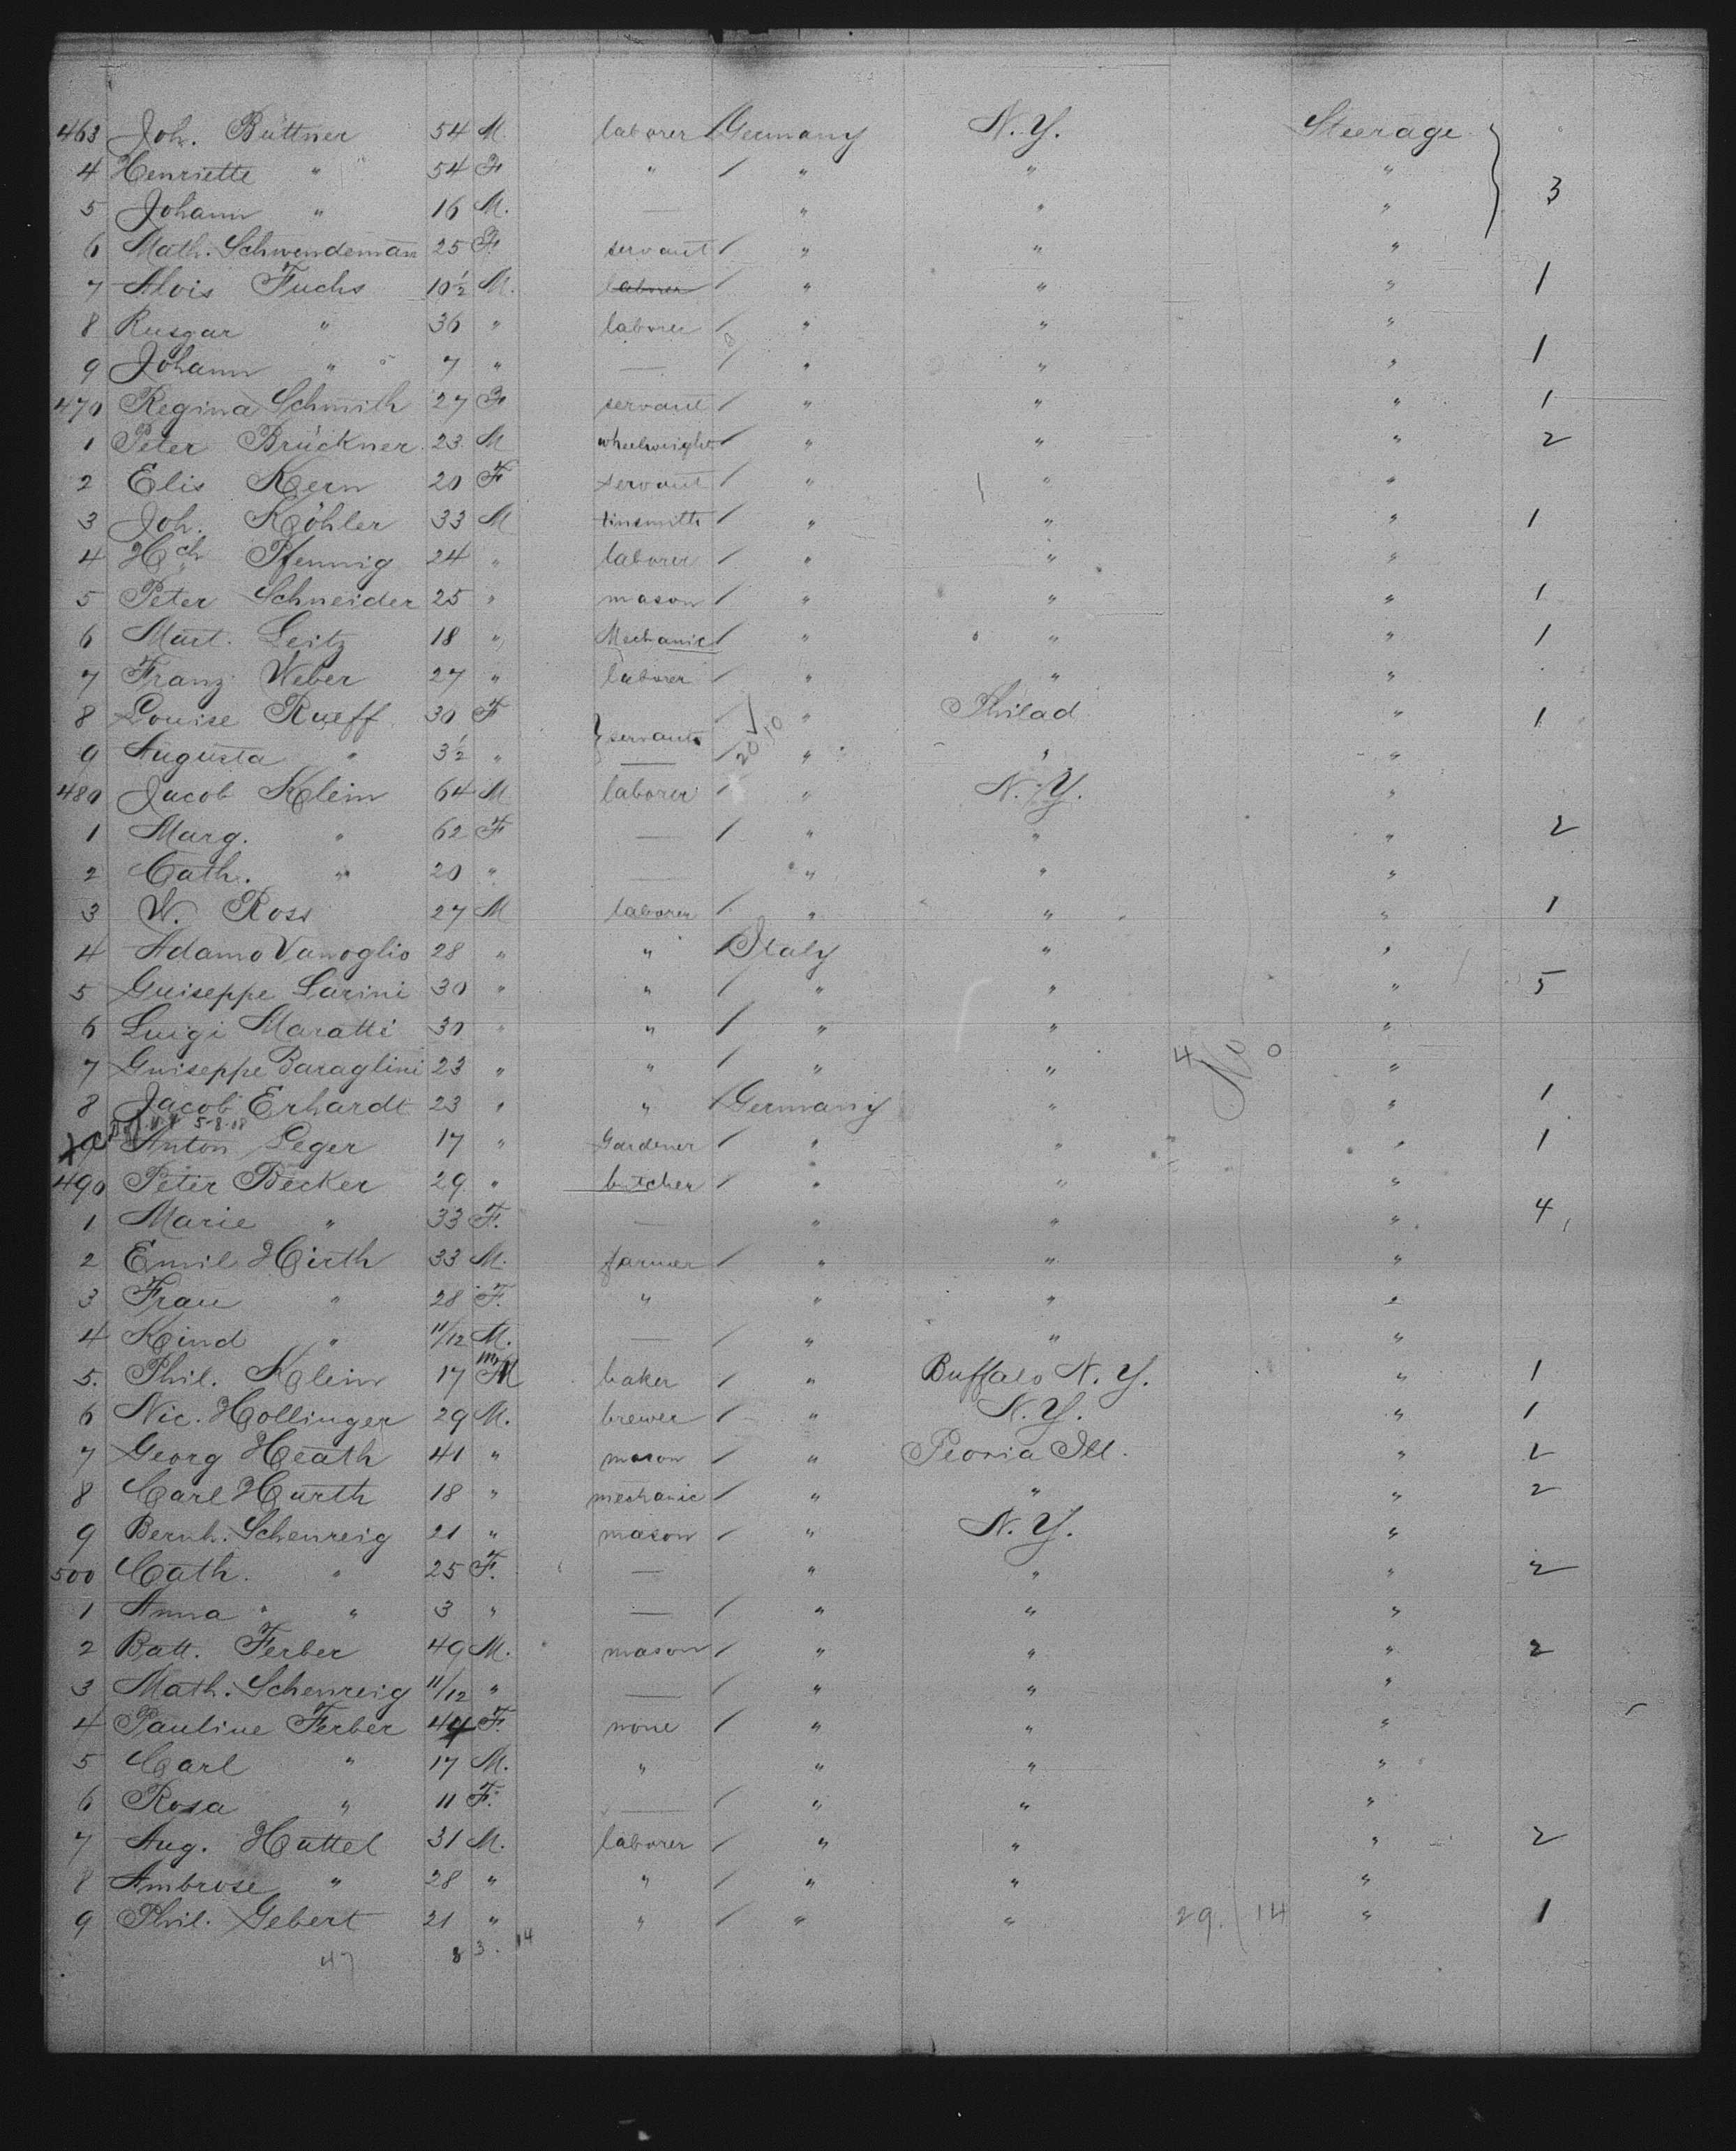 463 Joh. Büttner 54 M. laborer Germany N.Y. Steerage
4 Henriette " 54 F " " " " 3
5 Johann " 16 M. — " " "
6 Math. Schwendeman 25 F. servant " " "
7 Alois Fuchs 10½ M. laborer " " " 1
8 Rusgar " 36 " laborer " " "
9 Johann " 7 " — " " " 1
470 Regina Schmith 27 F servant " " " 1
1 Peter Brückner 23 M wheelwright " " " 2
2 Elis Kern 20 F servant " " "
3 Joh. Köhler 33 M tinsmith " " " 1
4 Hch Pfennig 24 " laborer " " "
5 Peter Schneider 25 " mason " " " 1
6 Mart. Leitz 18 " Mechanic " " " 1
7 Franz Weber 27 " laborer " " "
8 Louise Rueff 30 F servant " Philad " 1
9 Augusta " 3½ " — " " "
480 Jacob Klein 64 M laborer " N.Y. "
1 Marg. " 62 F — " " " 2
2 Cath. " 20 " — " " "
3 W. Ross 27 M laborer " " " 1
4 Adamo Vanoglio 28 " " Italy " "
5 Guiseppe Larini 30 " " " " " 5
6 Luigi Maratti 30 " " " " "
7 Guiseppe Baraglini 23 " " " " "
8 Jacob Erhardt 23 " " Germany " " 1
5-8-18
9 Anton Leger 17 " Gardener " " " 1
490 Peter Becker 29 " butcher " " "
1 Marie " 33 F. — " " " 4
2 Emil Hirth 33 M. farmer " " "
3 Frau " 28 F. " " " "
4 Kind " 11/12 M. — " " "
5. Phil. Klein 17 M baker " Buffalo N.Y. " 1
6 Nic. Hollinger 29 M. brewer " N.Y. " 1
7 Georg Heath 41 " mason " Peoria Ill. " 2
8 Carl Hurth 18 " mechanic " " " 2
9 Bernh. Schenreig 21 " mason " N.Y. "
500 Cath. " 25 F. — " " " 2
1 Anna " " 3 " — " " "
2 Batt. Ferber 49 M. mason " " " 2
3 Math. Schenreig 11/12 " — " " "
4 Pauline Ferber 44 F. none " " "
5 Carl " 17 M. " " " "
6 Rosa " 11 F. — " " "
7 Aug. Hattel 31 M. laborer " " " 2
8 Ambrose " 28 " " " " "
9 Phil. Gebert 21 " " " " 29. 14 " 1
47 8 3. 14